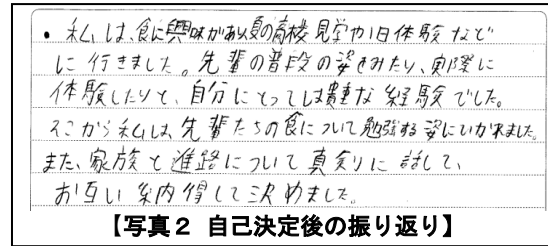 ・私は、食に興味があり夏の高校見学や1日体験など
に行きました。先輩の普段の姿をみたり、実際に
体験したりと、自分にとっては貴重な経験でした。
そこから私は、先輩たちの食について勉強する姿にひかれました。
また、家族と進路について真剣に話して、
お互い納得して決めました。
【写真2 自己決定後の振り返り】